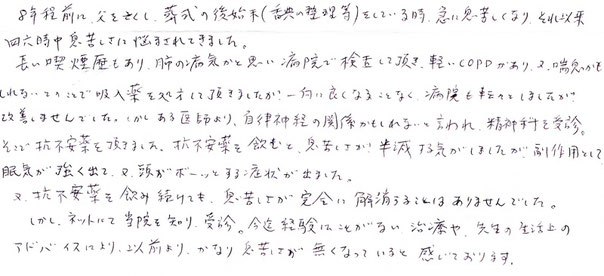 8年程前に、父を亡くし、葬式の後始末(香典の整理等)をしている時、急に息苦しくなり、それ以来
四六時中息苦しさに悩まされてきました。
長い喫煙歴もあり、肺の病気かと思い病院で検査して頂き、軽いCOPDがあり、又、喘息かも
しれないとのことで吸入薬を処方して頂きましたが一向に良くなることなく、病院も転々としましたが
改善しませんでした。しかしある医師より、自律神経の関係かもしれないと言われ、精神科を受診。
そこで抗不安薬を頂きました。抗不安薬を飲むと、息苦しさが半減する気がしましたが、副作用として
眠気が強く出て、又、頭がボーッとする症状が出ました。
又、抗不安薬を飲み続けても、息苦しさが完全に解消することはありませんでした。
しかし、ネットにて当院を知り、受診。今迄経験したことがない治療や、先生の生活上の
アドバイスにより、以前より、かなり息苦しさが無くなっていると感じております。